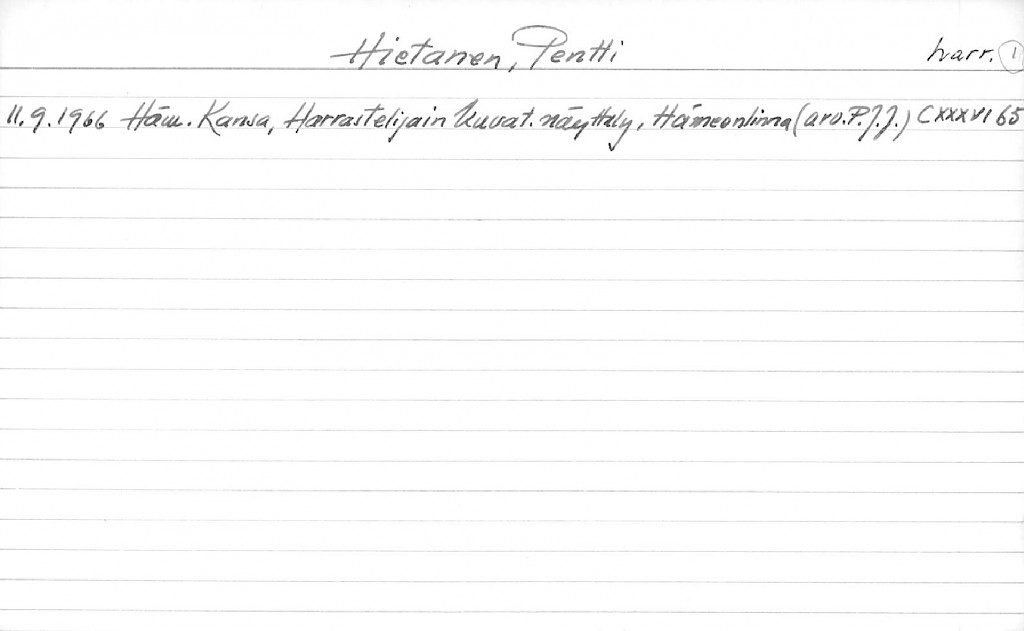 Hietanen, Pentti harr. 1
11.9.1966 Häm. Kansa, Harrastelijain kuvat. näyttely, Hämeenlinna (arv. P.J.J.) CXXXVI 65